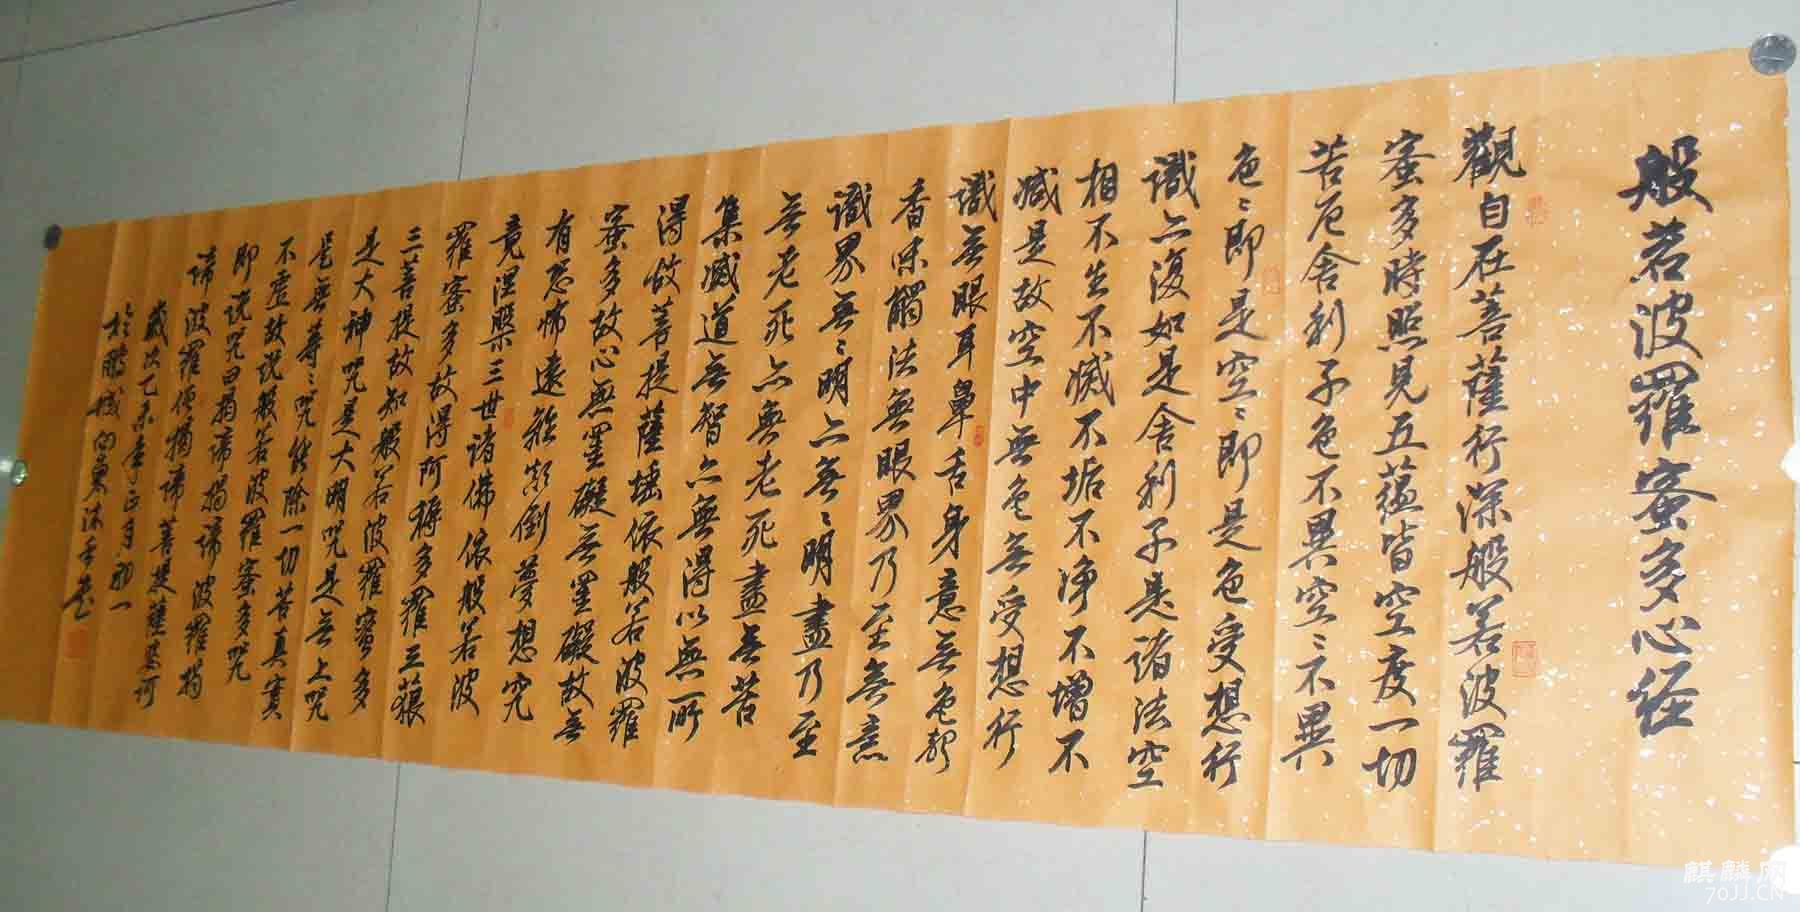 般若波羅蜜多心经
觀自在菩薩行深般若波羅
蜜多時照見五蘊皆空度一切
苦厄舍利子色不異空〻不異
色〻即是空〻即是色受想行
識亦復如是舍利子是諸法空
相不生不滅不垢不净不增不
减是故空中無色無受想行
識無眼耳鼻舌身意無色聲
香味觸法無眼界乃至無意
識界無〻明亦無〻明盡乃至
無老死亦無老死盡無苦
集滅道無智亦無得以無所
得故菩提薩埵依般若波羅
蜜多故心無罣礙無罣礙故無
有恐怖遠離顛倒夢想究
竟涅槃三世諸佛依般若波
羅蜜多故得阿耨多羅三藐
三菩提故知般若波羅蜜多
是大神咒是大明咒是無上咒
是無等〻咒能除一切苦真實
不虚故説般若波羅蜜多咒
即说咒曰揭谛揭谛波羅揭
谛波羅僧揭谛菩提薩婆訶
歲次乙未年正月初一
於鵬城
麒麟网
70JJ.CN